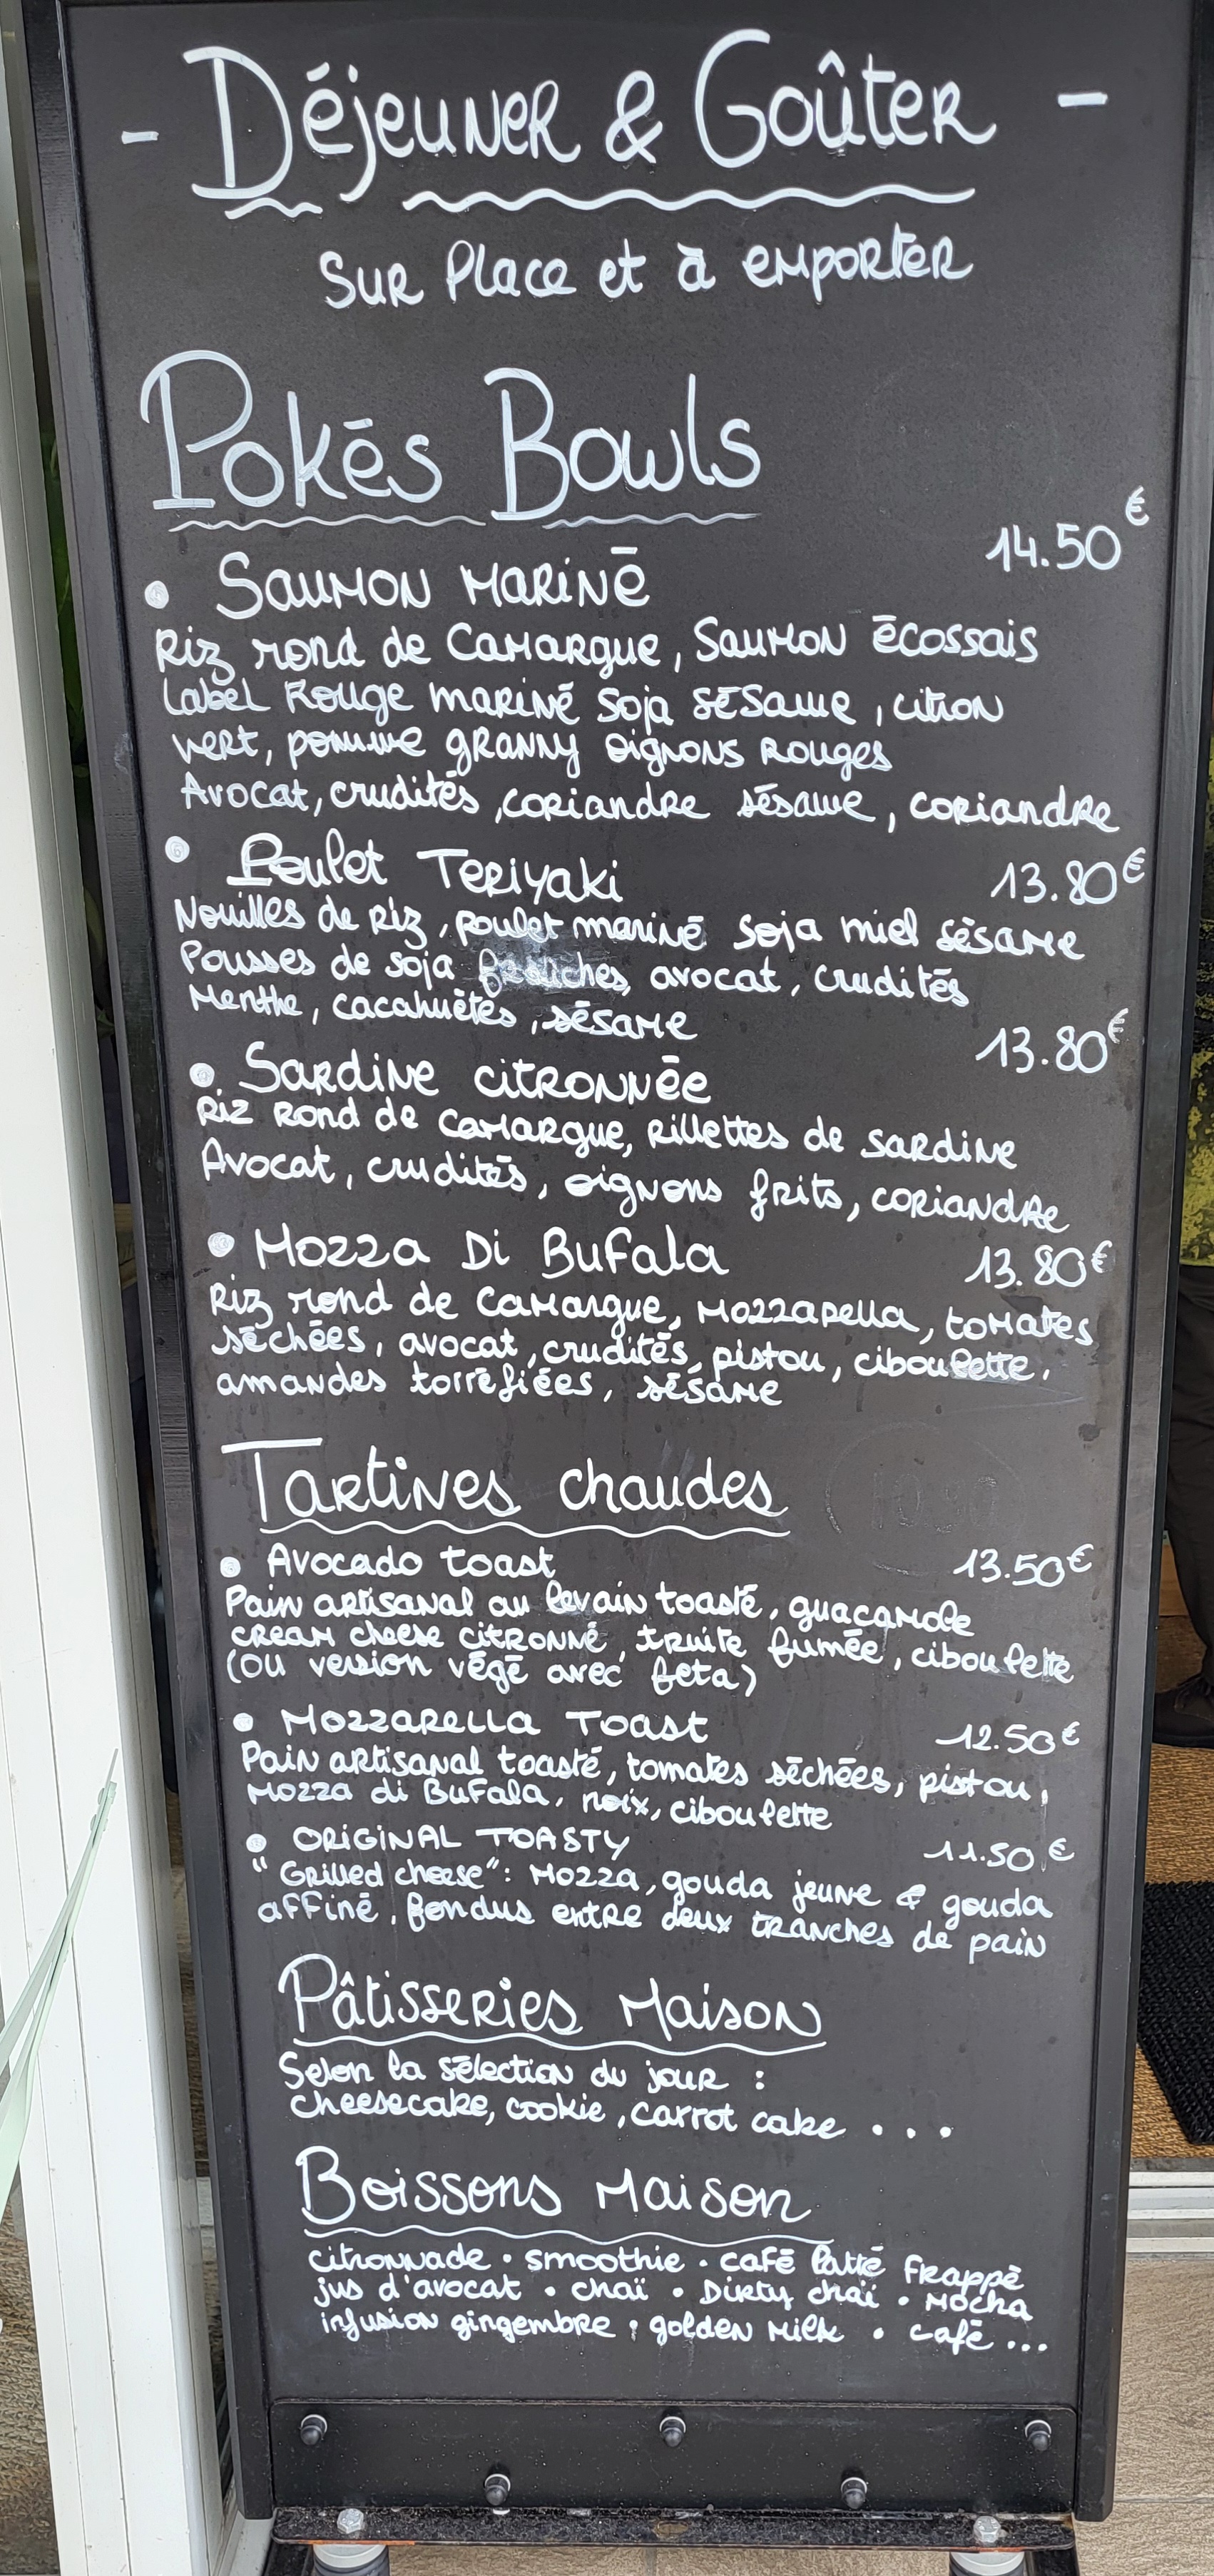 - Déjeuner & Goûter -
Sur Place et à emporter
Pokés Bowls
14.50€
• Saumon mariné
Riz rond de Camargue, Saumon écossais
Label Rouge mariné soja sésame, citron
vert, pomme granny oignons rouges
Avocat, crudités, coriandre sésame, coriandre
• Poulet Teriyaki 13.80€
Nouilles de riz, poulet mariné soja miel sésame
Pousses de soja fraîches, avocat, crudités
Menthe, cacahuètes, sésame
13.80€
• Sardine citronnée
Riz rond de Camargue, rillettes de sardine
Avocat, crudités, oignons frits, coriandre
• Mozza Di Bufala 13.80€
Riz rond de Camargue, mozzarella, tomates
séchées, avocat, crudités, pistou, ciboulette,
amandes torréfiées, sésame
Tartines chaudes
• Avocado toast 13.50€
Pain artisanal au levain toasté, guacamole
cream cheese citronné, truite fumée, ciboulette
(ou version végé avec feta)
• Mozzarella Toast 12.50€
Pain artisanal toasté, tomates séchées, pistou,
Mozza di Bufala, noix, ciboulette
• ORIGINAL TOASTY 11.50€
"Grilled cheese": Mozza, gouda jeune & gouda
affiné, fondus entre deux tranches de pain
Pâtisseries Maison
Selon la sélection du jour :
cheesecake, cookie, carrot cake ...
Boissons Maison
citronnade • smoothie • café latté frappé
jus d'avocat • chaï • Dirty chaï • Mocha
infusion gingembre • golden milk • café ...